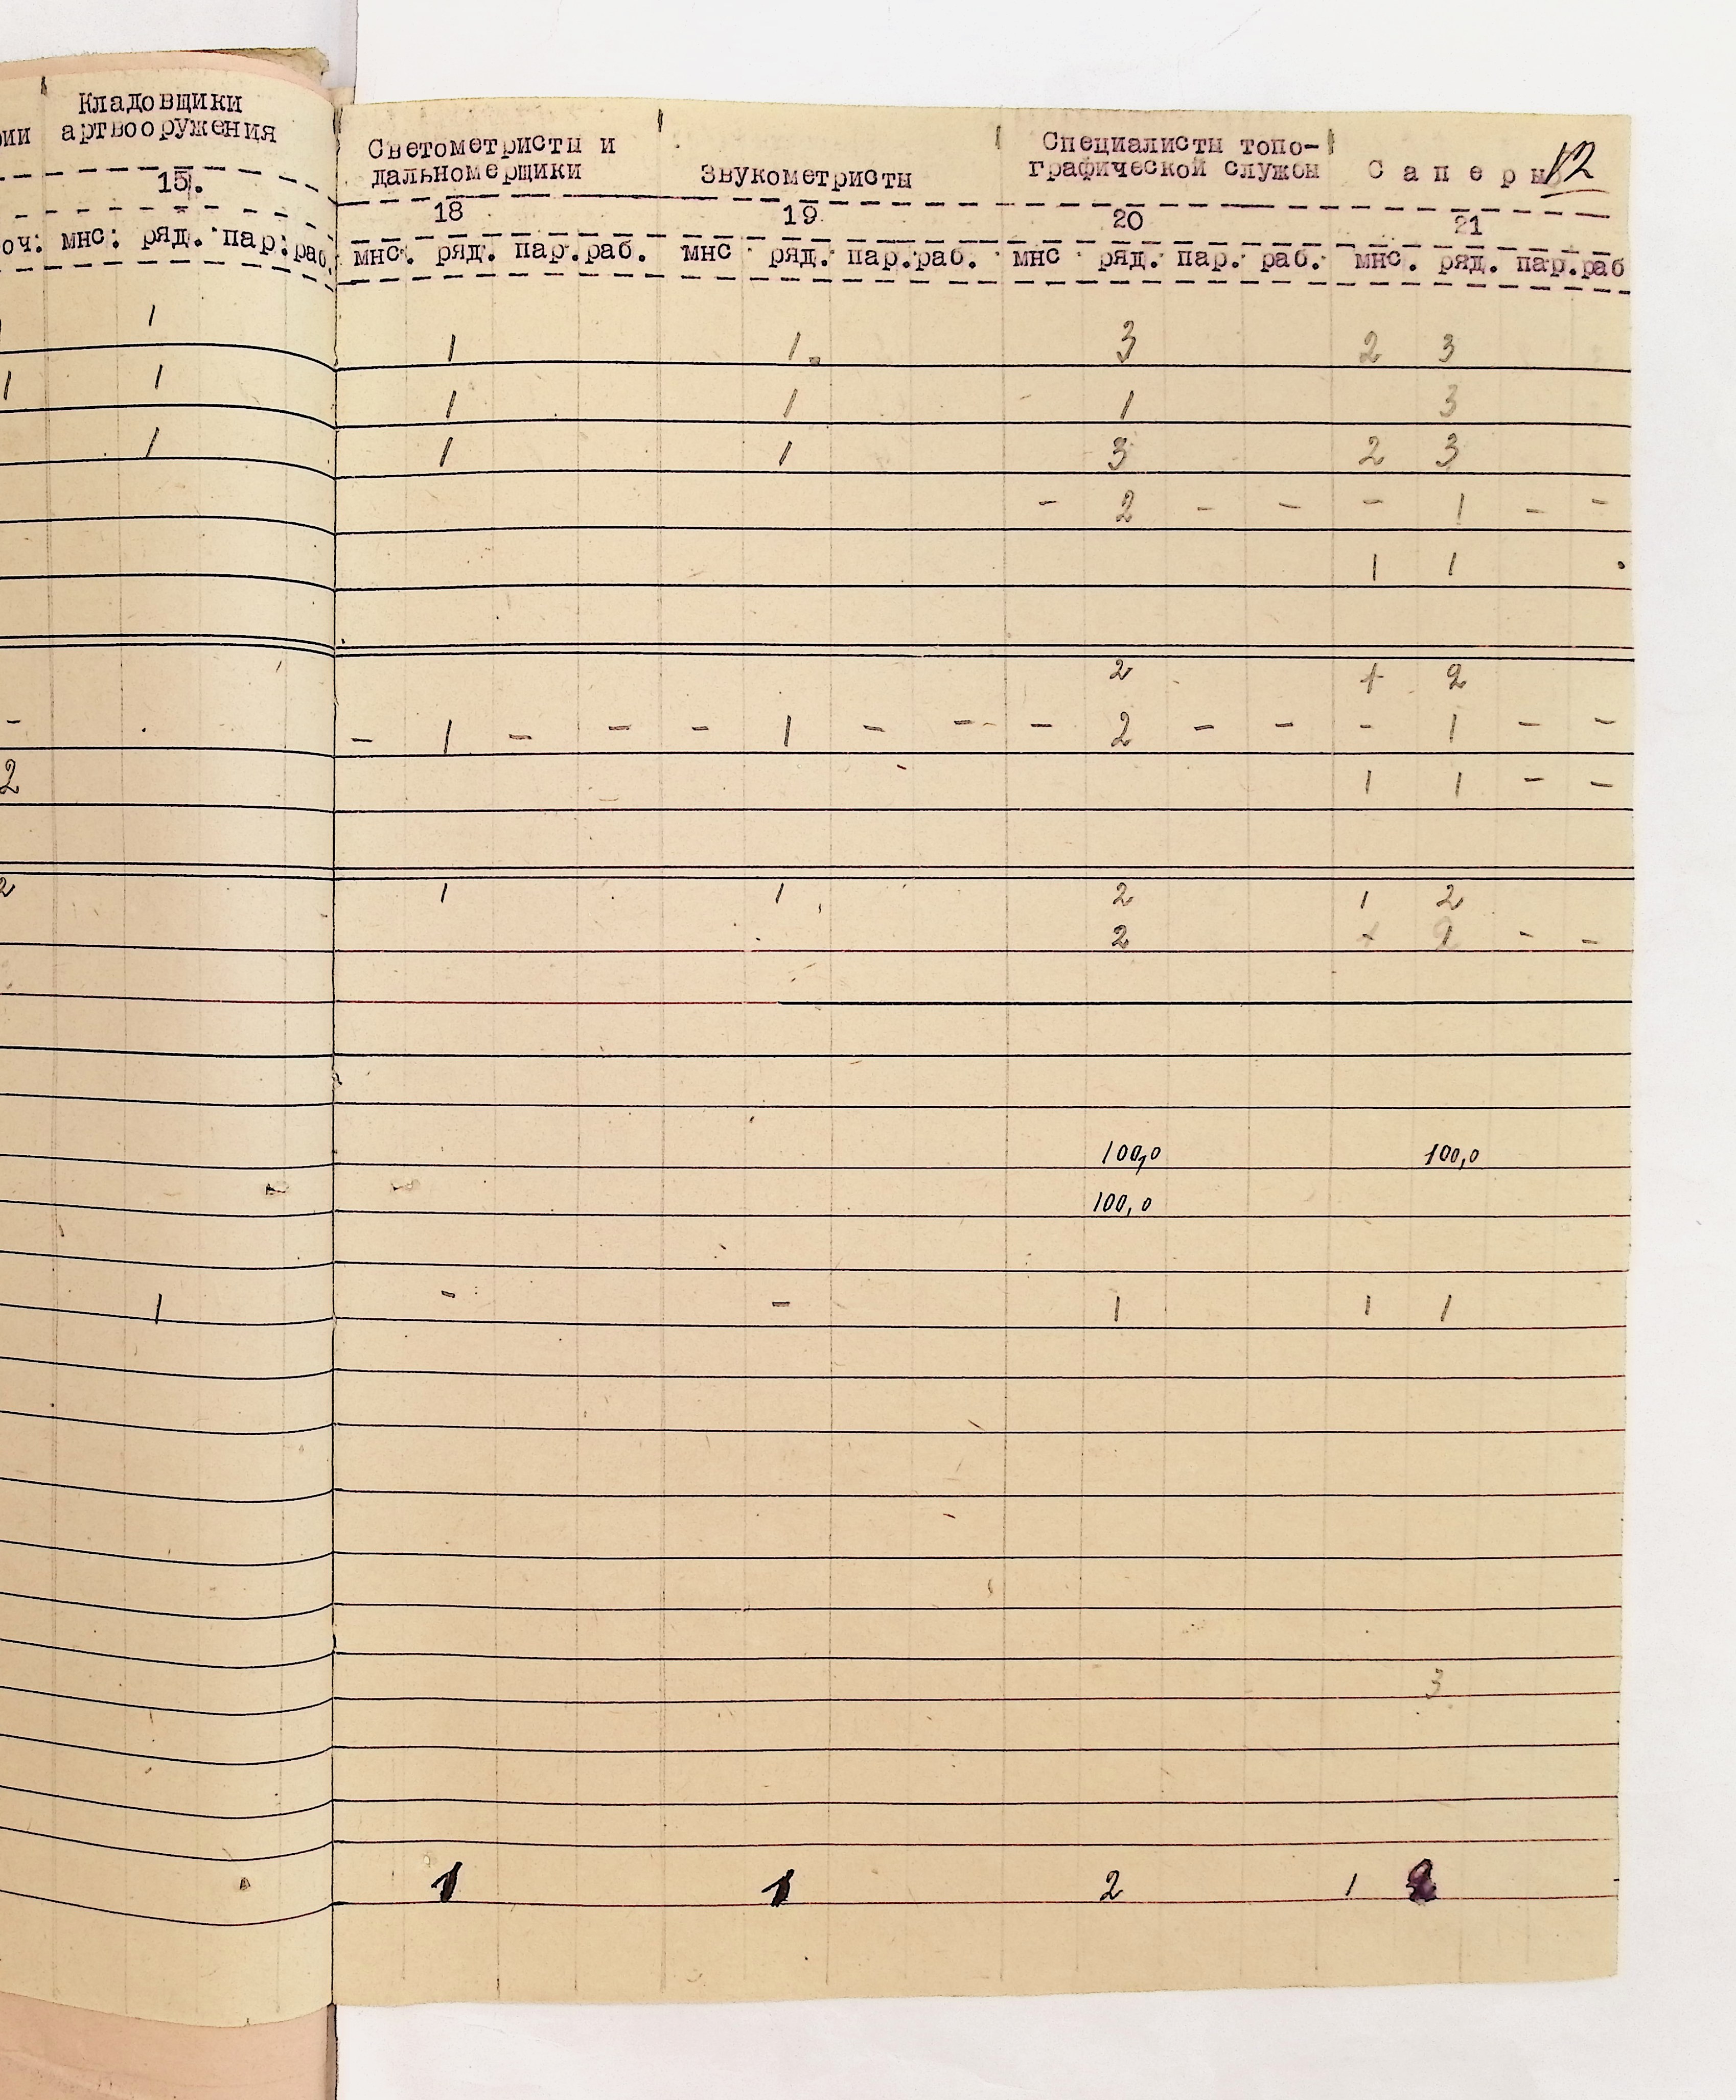 Кладовщики
ии артвооружения
Светометристы и Специалисты топо- 12
дальномерщики Звукометристы графической службы Саперы
15. 18 19 20 21
оч. мнс. ряд. пар. раб. мнс. ряд. пар. раб. мнс ряд. пар. раб. мнс ряд. пар. раб. мнс. ряд. пар. раб
1 1 1 3 2 3
1 1 1 1 1 3
1 1 1 3 2 3
- 2 - - - 1 - -
1 1
2 2
- - 1 - - - 1 - - - 2 - - - 1 - -
2 1 1 - -
2 1 1 2 1 2
2 - -
100,0 100,0
100,0
1 - - 1 1 1
3
1 1 2 1